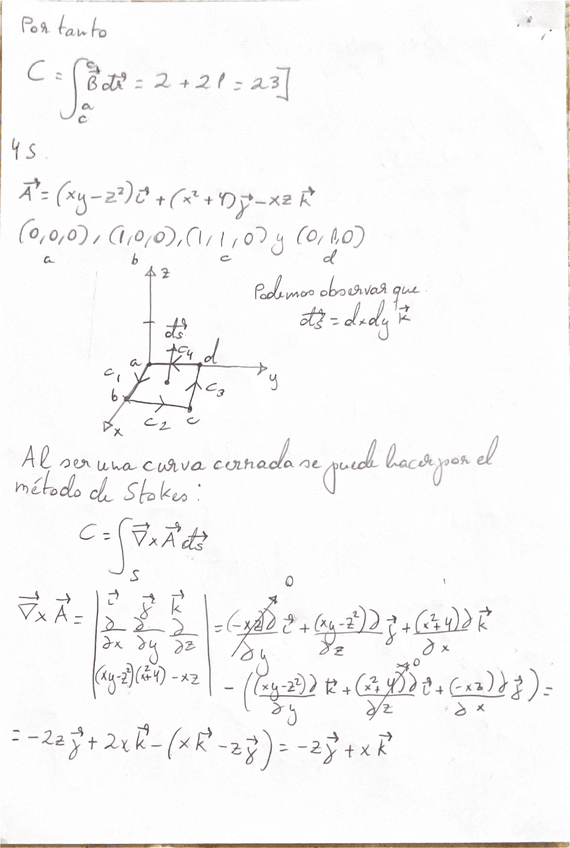 Por tanto
C = ∫ₐ꜀ᶜ⁴ B⃗ dr⃗ = 2 + 21 = 23]
4 S.
A⃗ = (xy-z²) i⃗ + (x² + 4) j⃗ - xz k⃗
(0,0,0), (1,0,0), (1,1,0) y (0,1,0)
a b c d
z
Podemos observar que
ds⃗ = dxdy k⃗
ds⃗
a c₄ d
c₁ y
b c₃
x c₂ c
Al ser una curva cerrada se puede hacer por el
método de Stokes:
C = ∫_S ∇⃗ x A⃗ ds⃗
∇⃗ x A⃗ = | i⃗ j⃗ k⃗ ; ∂/∂x ∂/∂y ∂/∂z ; (xy-z²) (x²+4) -xz | = (-xz)∂/∂y i⃗ 0 + (xy-z²)∂/∂z j⃗ + (x²+4)∂/∂x k⃗
- ((xy-z²)∂/∂y k⃗ + (x²+4)∂/∂z i⃗ 0 + (-xz)∂/∂x j⃗) =
= -2z j⃗ + 2x k⃗ - (x k⃗ - z j⃗) = -z j⃗ + x k⃗